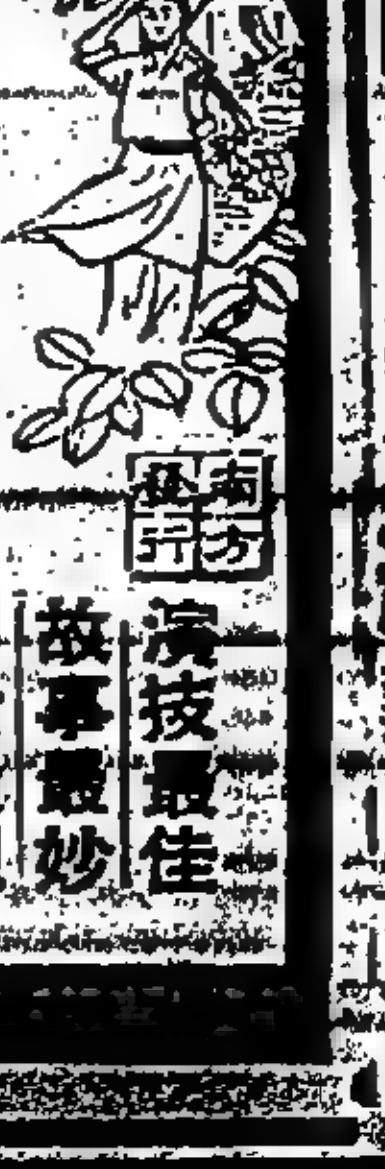 南方
發行
演技最佳
故事最妙